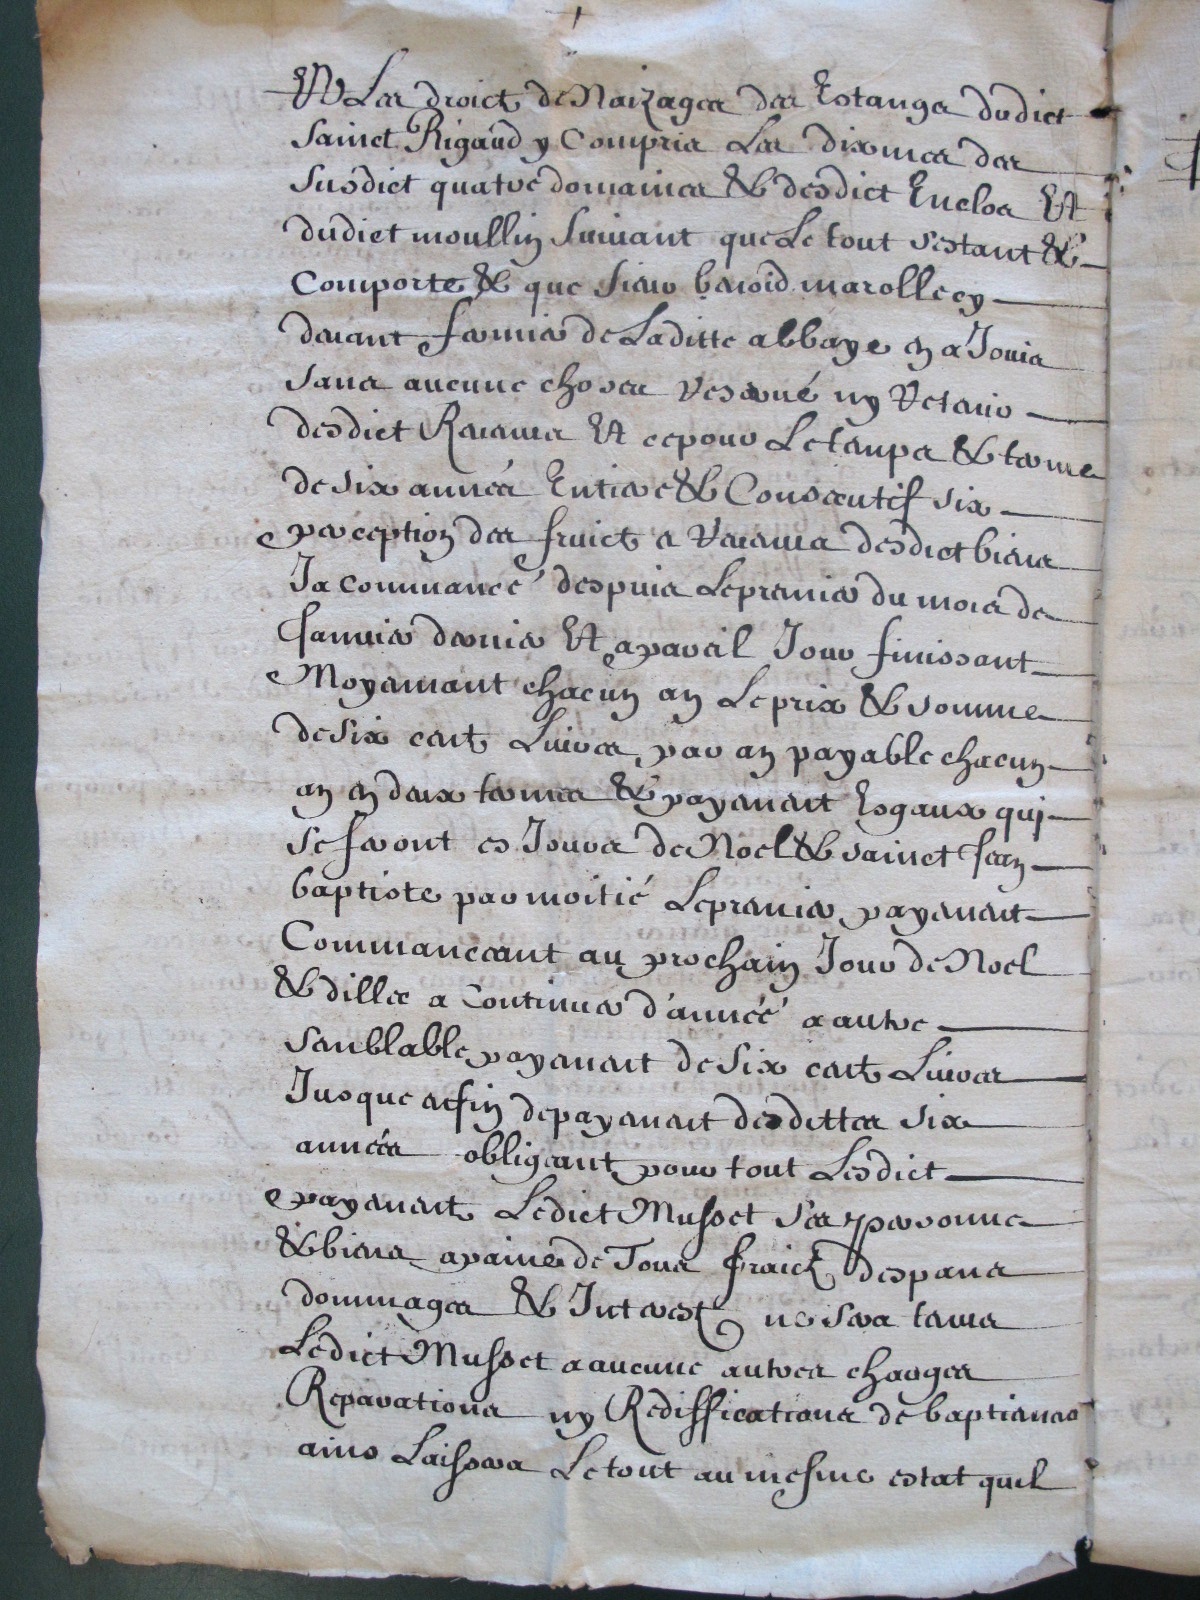 Et Les droict de Naizages des Estangs dudict
Sainct Rigaud y Compris Les dixmes des
Susdict quatre domaines & desdict Enclos Et
dudict moullin Suivant que Le tout sestant &
Comporte & que Sieur benoid marolle cy
devant fermier de Laditte abbaye en a Jouis
Sans aucune choses reservé ny retenir
desdict Revenus Et ce pour Le temps & terme
de six année Entiere & Consecutif six
perception des fruict e revenus desdict biens
Ja commancé despuis Le premier du mois de
Janvier dernier Et a pareil Jour finissant
Moyennant chacun an Le prix & somme
de Six cent Livres par an payable chacun
an en deux termes & payement Esgaux qui
se feront es Jours de Noel & sainct Jean
baptiste par moitié Le premier payement
Commanceant au prochain Jour de Noel
& dillec a Continuer d'année a autre
Semblable payement de Six cent Livres
Jusque a efin de payement desdittes six
années obligeant pour tout Lesdict
payement Ledict Musset Ses personne
& biens a paine de Tous fraict despans
dommages & Interest ne sera tenus
Ledict Musset a aucune autres charges
Reparations ny Rediffications de baptiemens
ains Laissera Le tout au mesme estat quil